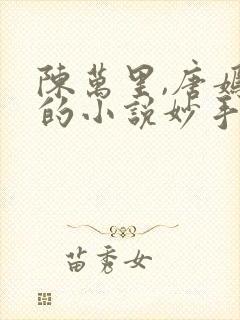 陳萬里,唐嫣
的小說妙手
苗秀女